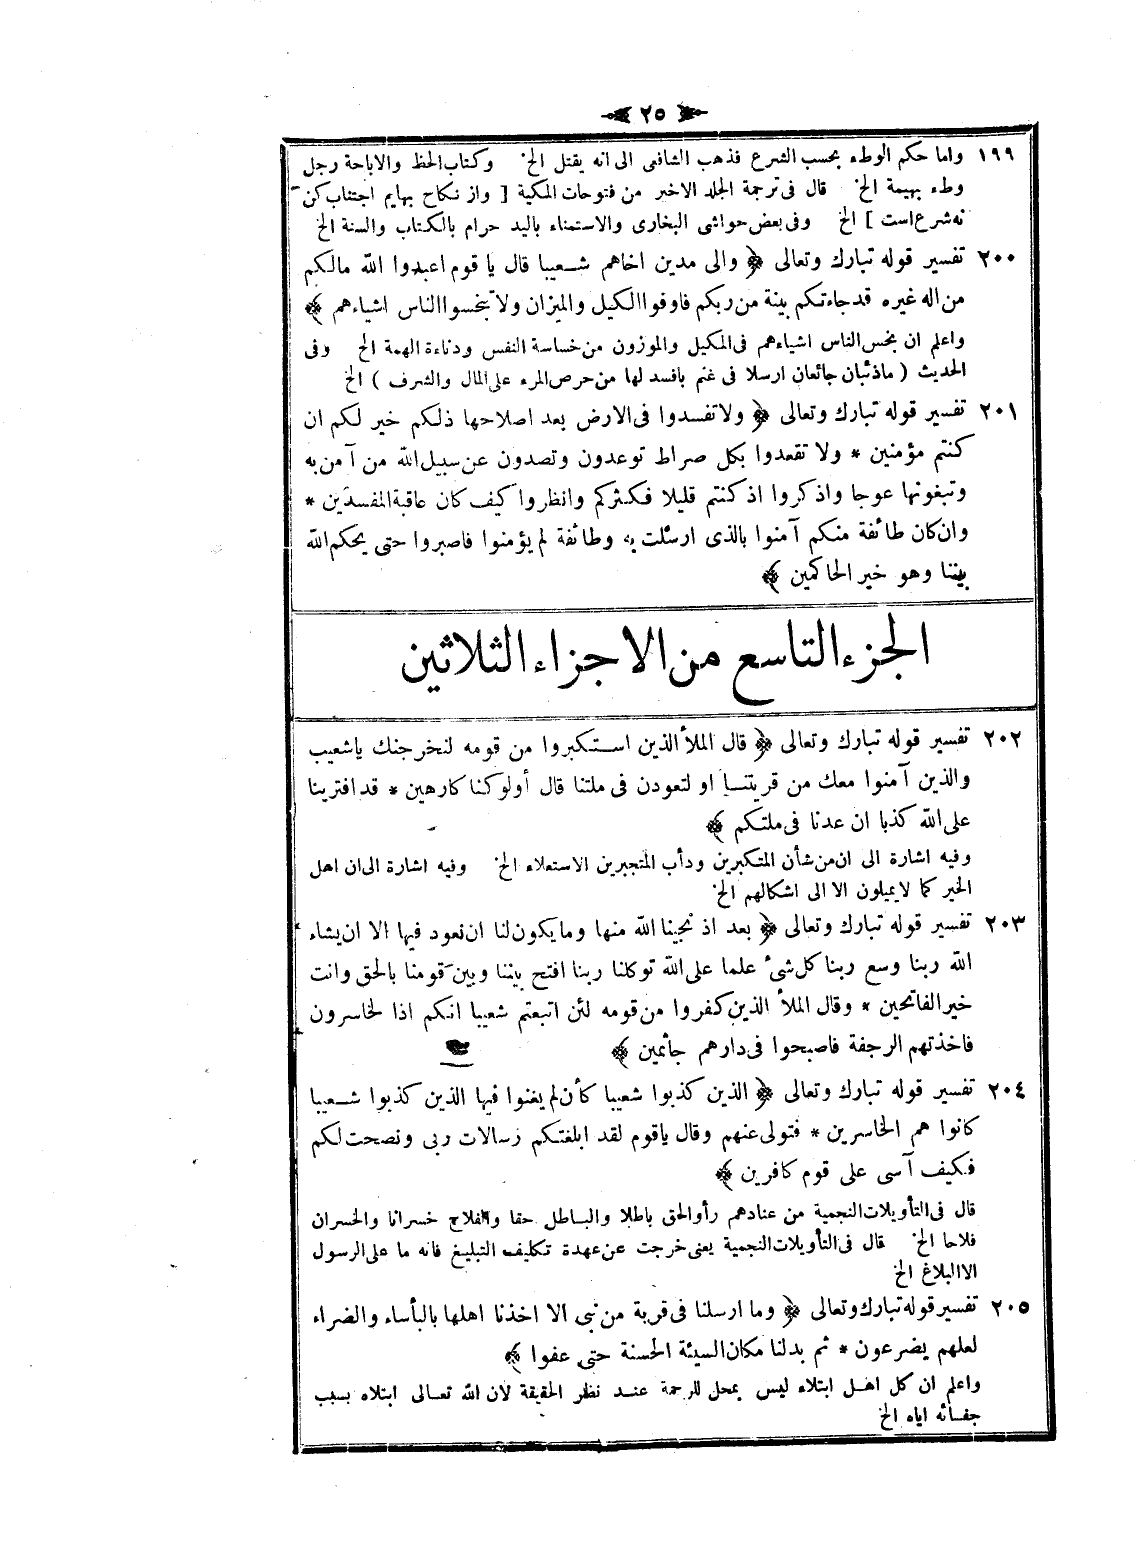 ٢٥
١٩٩ واما حكم الوطء بحسب الشرع فذهب الشافعى الى انه يقتل الخ وكتاب الحظ والاباحة رجل
وطء بهيمة الخ قال فى ترجمة الجلد الاخير من فتوحات المكية [ واز نكاح بهايم اجتناب كن
نه شرع است ] الخ وفى بعض حواشى البخارى والاستمناء باليد حرام بالكتاب والسنة الخ
٢٠٠ تفسير قوله تبارك وتعالى ﴿ والى مدين اخاهم شعيبا قال يا قوم اعبدوا الله مالكم
من اله غيره قد جاءتكم بينة من ربكم فاوفوا الكيل والميزان ولا تبخسوا الناس اشياءهم ﴾
واعلم ان بخس الناس اشياءهم فى المكيل والموزون من خساسة النفس ودناءة الهمة الخ وفى
الحديث ( ماذئبان جائعان ارسلا فى غنم بافسد لها من حرص المرء على المال والشرف ) الخ
٢٠١ تفسير قوله تبارك وتعالى ﴿ ولا تفسدوا فى الارض بعد اصلاحها ذلكم خير لكم ان
كنتم مؤمنين * ولا تقعدوا بكل صراط توعدون وتصدون عن سبيل الله من آمن به
وتبغونها عوجا واذكروا اذ كنتم قليلا فكثركم وانظروا كيف كان عاقبة المفسدين *
وان كان طائفة منكم آمنوا بالذى ارسلت به وطائفة لم يؤمنوا فاصبروا حتى يحكم الله
بيننا وهو خير الحاكمين ﴾
الجزء التاسع من الاجزاء الثلاثين
٢٠٢ تفسير قوله تبارك وتعالى ﴿ قال الملأ الذين استكبروا من قومه لنخرجنك ياشعيب
والذين آمنوا معك من قريتنا او لتعودن فى ملتنا قال أولوكنا كارهين * قد افترينا
على الله كذبا ان عدنا فى ملتكم ﴾
وفيه اشارة الى ان من شأن المتكبرين ودأب المتجبرين الاستعلاء الخ وفيه اشارة الى ان اهل
الخير كما لايميلون الا الى اشكالهم الخ
٢٠٣ تفسير قوله تبارك وتعالى ﴿ بعد اذ نجينا الله منها وما يكون لنا ان نعود فيها الا ان يشاء
الله ربنا وسع ربنا كل شىء علما على الله توكلنا ربنا افتح بيننا وبين قومنا بالحق وانت
خير الفاتحين * وقال الملأ الذين كفروا من قومه لئن اتبعتم شعيبا انكم اذا لخاسرون
فاخذتهم الرجفة فاصبحوا فى دارهم جاثمين ﴾
٢٠٤ تفسير قوله تبارك وتعالى ﴿ الذين كذبوا شعيبا كأن لم يغنوا فيها الذين كذبوا شعيبا
كانوا هم الخاسرين * فتولى عنهم وقال ياقوم لقد ابلغتكم رسالات ربى ونصحت لكم
فكيف آسى على قوم كافرين ﴾
قال فى التأويلات النجمية من عنادهم رأوالحق باطلا والباطل حقا والفلاح خسرانا والخسران
فلاحا الخ قال فى التأويلات النجمية يعنى خرجت عن عهدة تكليف التبليغ فانه ما على الرسول
الا البلاغ الخ
٢٠٥ تفسير قوله تبارك وتعالى ﴿ وما ارسلنا فى قرية من نبى الا اخذنا اهلها بالبأساء والضراء
لعلهم يضرعون * ثم بدلنا مكان السيئة الحسنة حتى عفوا ﴾
واعلم ان كل اهل ابتلاء ليس بمحل للرحمة عند نظر الحقيقة لان الله تعالى ابتلاه بسبب
جفائه اياه الخ